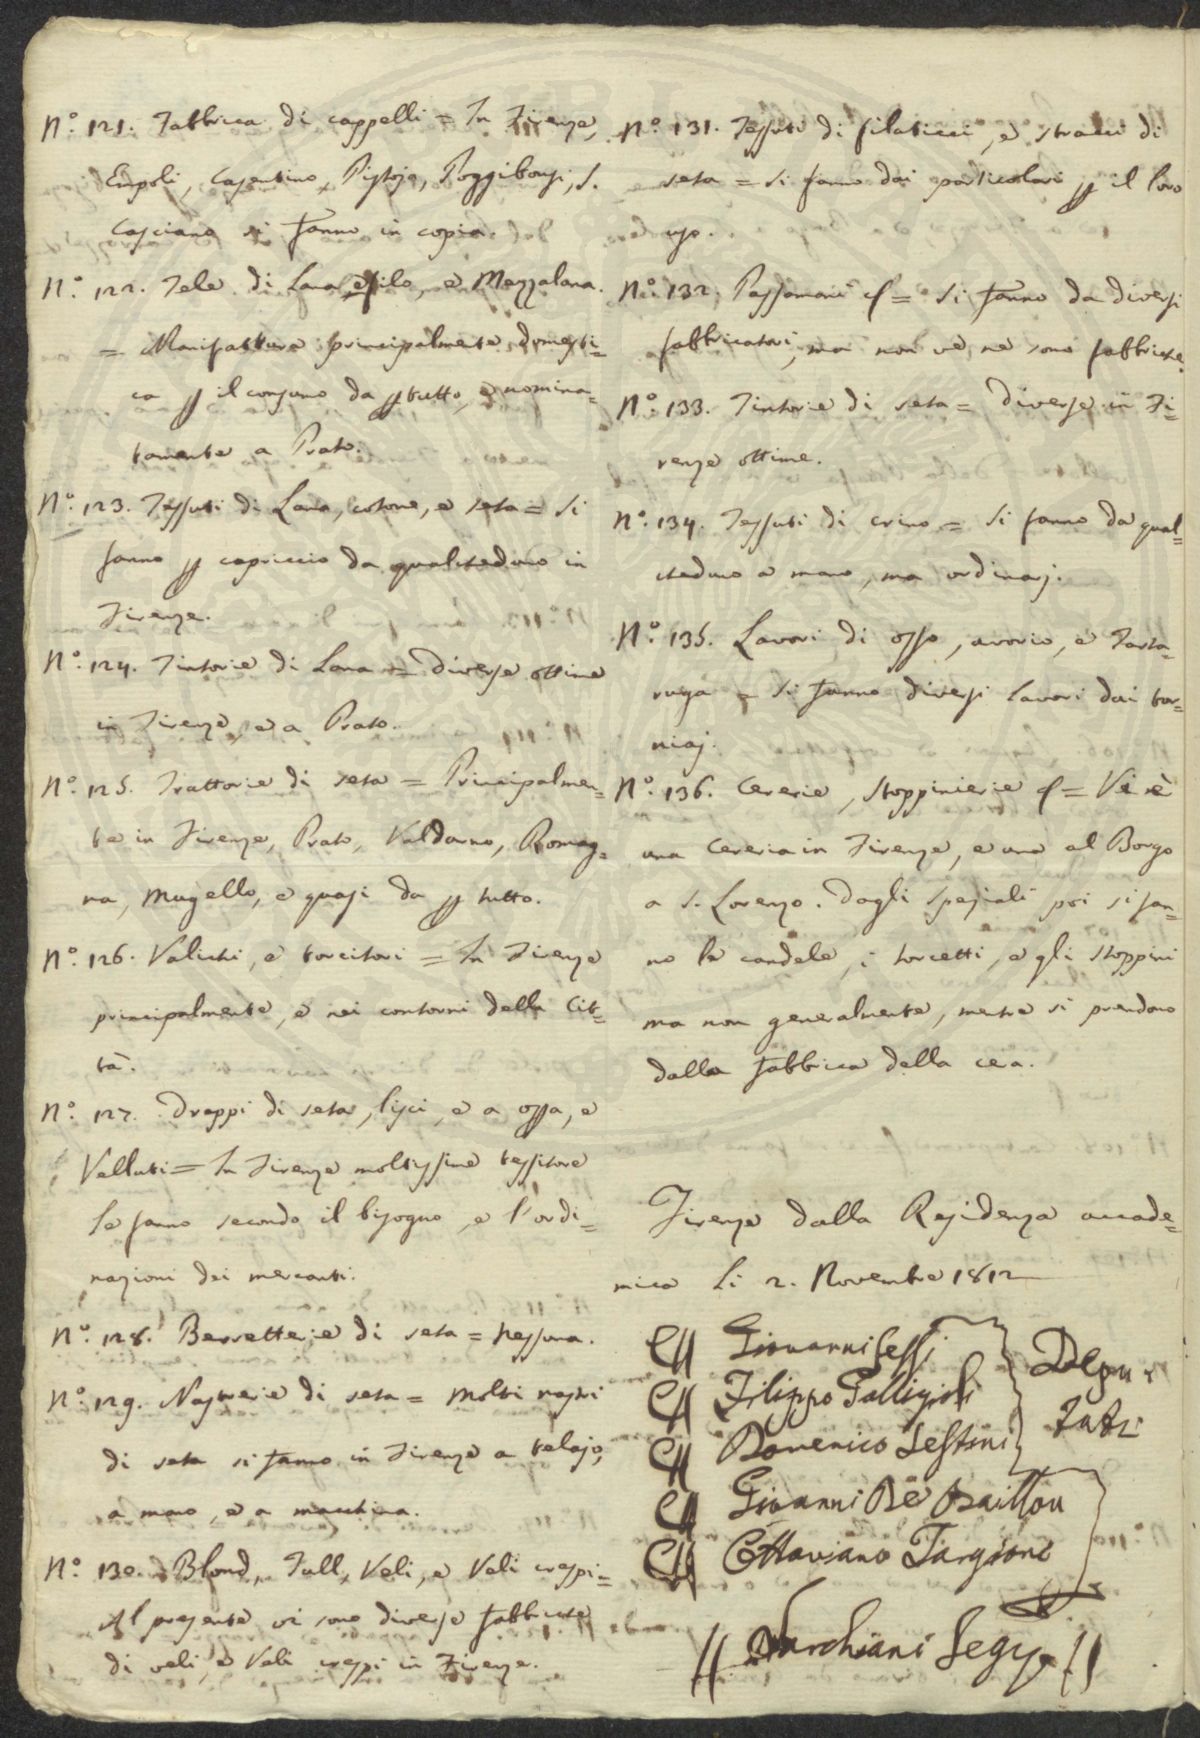 N.º 121. Fabbrica di cappelli = In Firenze,
Empoli, Casentino, Pistoja, Poggibonsi, S.
Casciano si fanno in copia.
N.º 122. Tele di Lana, e filo, e Mezzalana.
= Manifatture principalmente domesti=
ca p il consumo da p tutto, e nomina=
tamente a Prato.
N.º 123. Tessuti di Lana, cotone, e seta = Si
fanno p capriccio da qualcheduno in
Firenze.
N.º 124. Tintorie di Lana = Diverse ottime
in Firenze, e a Prato.
N.º 125. Trattorie di seta = Principalmen=
te in Firenze, Prato, Valdarno, Romag=
na, Mugello, e quasi da p tutto.
N.º 126. Valichi, e torcitori = In Firenze
principalmente, e nei contorni della Cit=
tà.
N.º 127. Drappi di seta, lisci, e a opra, e
Velluti = In Firenze moltissime tessitore
le fanno secondo il bisogno, e l'ordi=
nazioni dei mercanti.
N.º 128. Berretterie di seta = Nessuna.
N.º 129. Nastrerie di seta = Molti nastri
di seta si fanno in Firenze a telajo,
a mano, e a macchina.
N.º 130. Blond, Tull, Veli, e Veli crespi =
Al presente vi sono diverse fabbriche
di veli, e Veli crespi in Firenze.
N.º 131. Tessuti di filaticci, e stracci di
seta = Si fanno dai particolari p il loro
uso.
N.º 132. Passamani = Si fanno da diversi
fabbricatori, ma non ve ne sono fabbriche.
N.º 133. Tintorie di seta = Diverse in Fi=
renze ottime.
N.º 134. Tessuti di crino = Si fanno da qual=
cheduno a mano, ma ordinarj.
N.º 135. Lavori di osso, avorio, e Tarta=
ruga = Si fanno diversi lavori dai tor=
niaj.
N.º 136. Cererie, Stoppinierie = Vi è
una Cereria in Firenze, e una al Borgo
a S. Lorenzo. Dagli speziali poi si fan=
no le candele, i torcetti, e gli stoppini
ma non generalmente, mentre si prendono
dalla fabbrica della cera.
Firenze dalla Residenza accade=
mica li 2. Novembre 1812
Giovanni Lessi
Filippo Gallizioli
Domenico Sestini
Depu
tati
Giovanni De Baillou
Ottaviano Targioni
Sarchiani Segr.